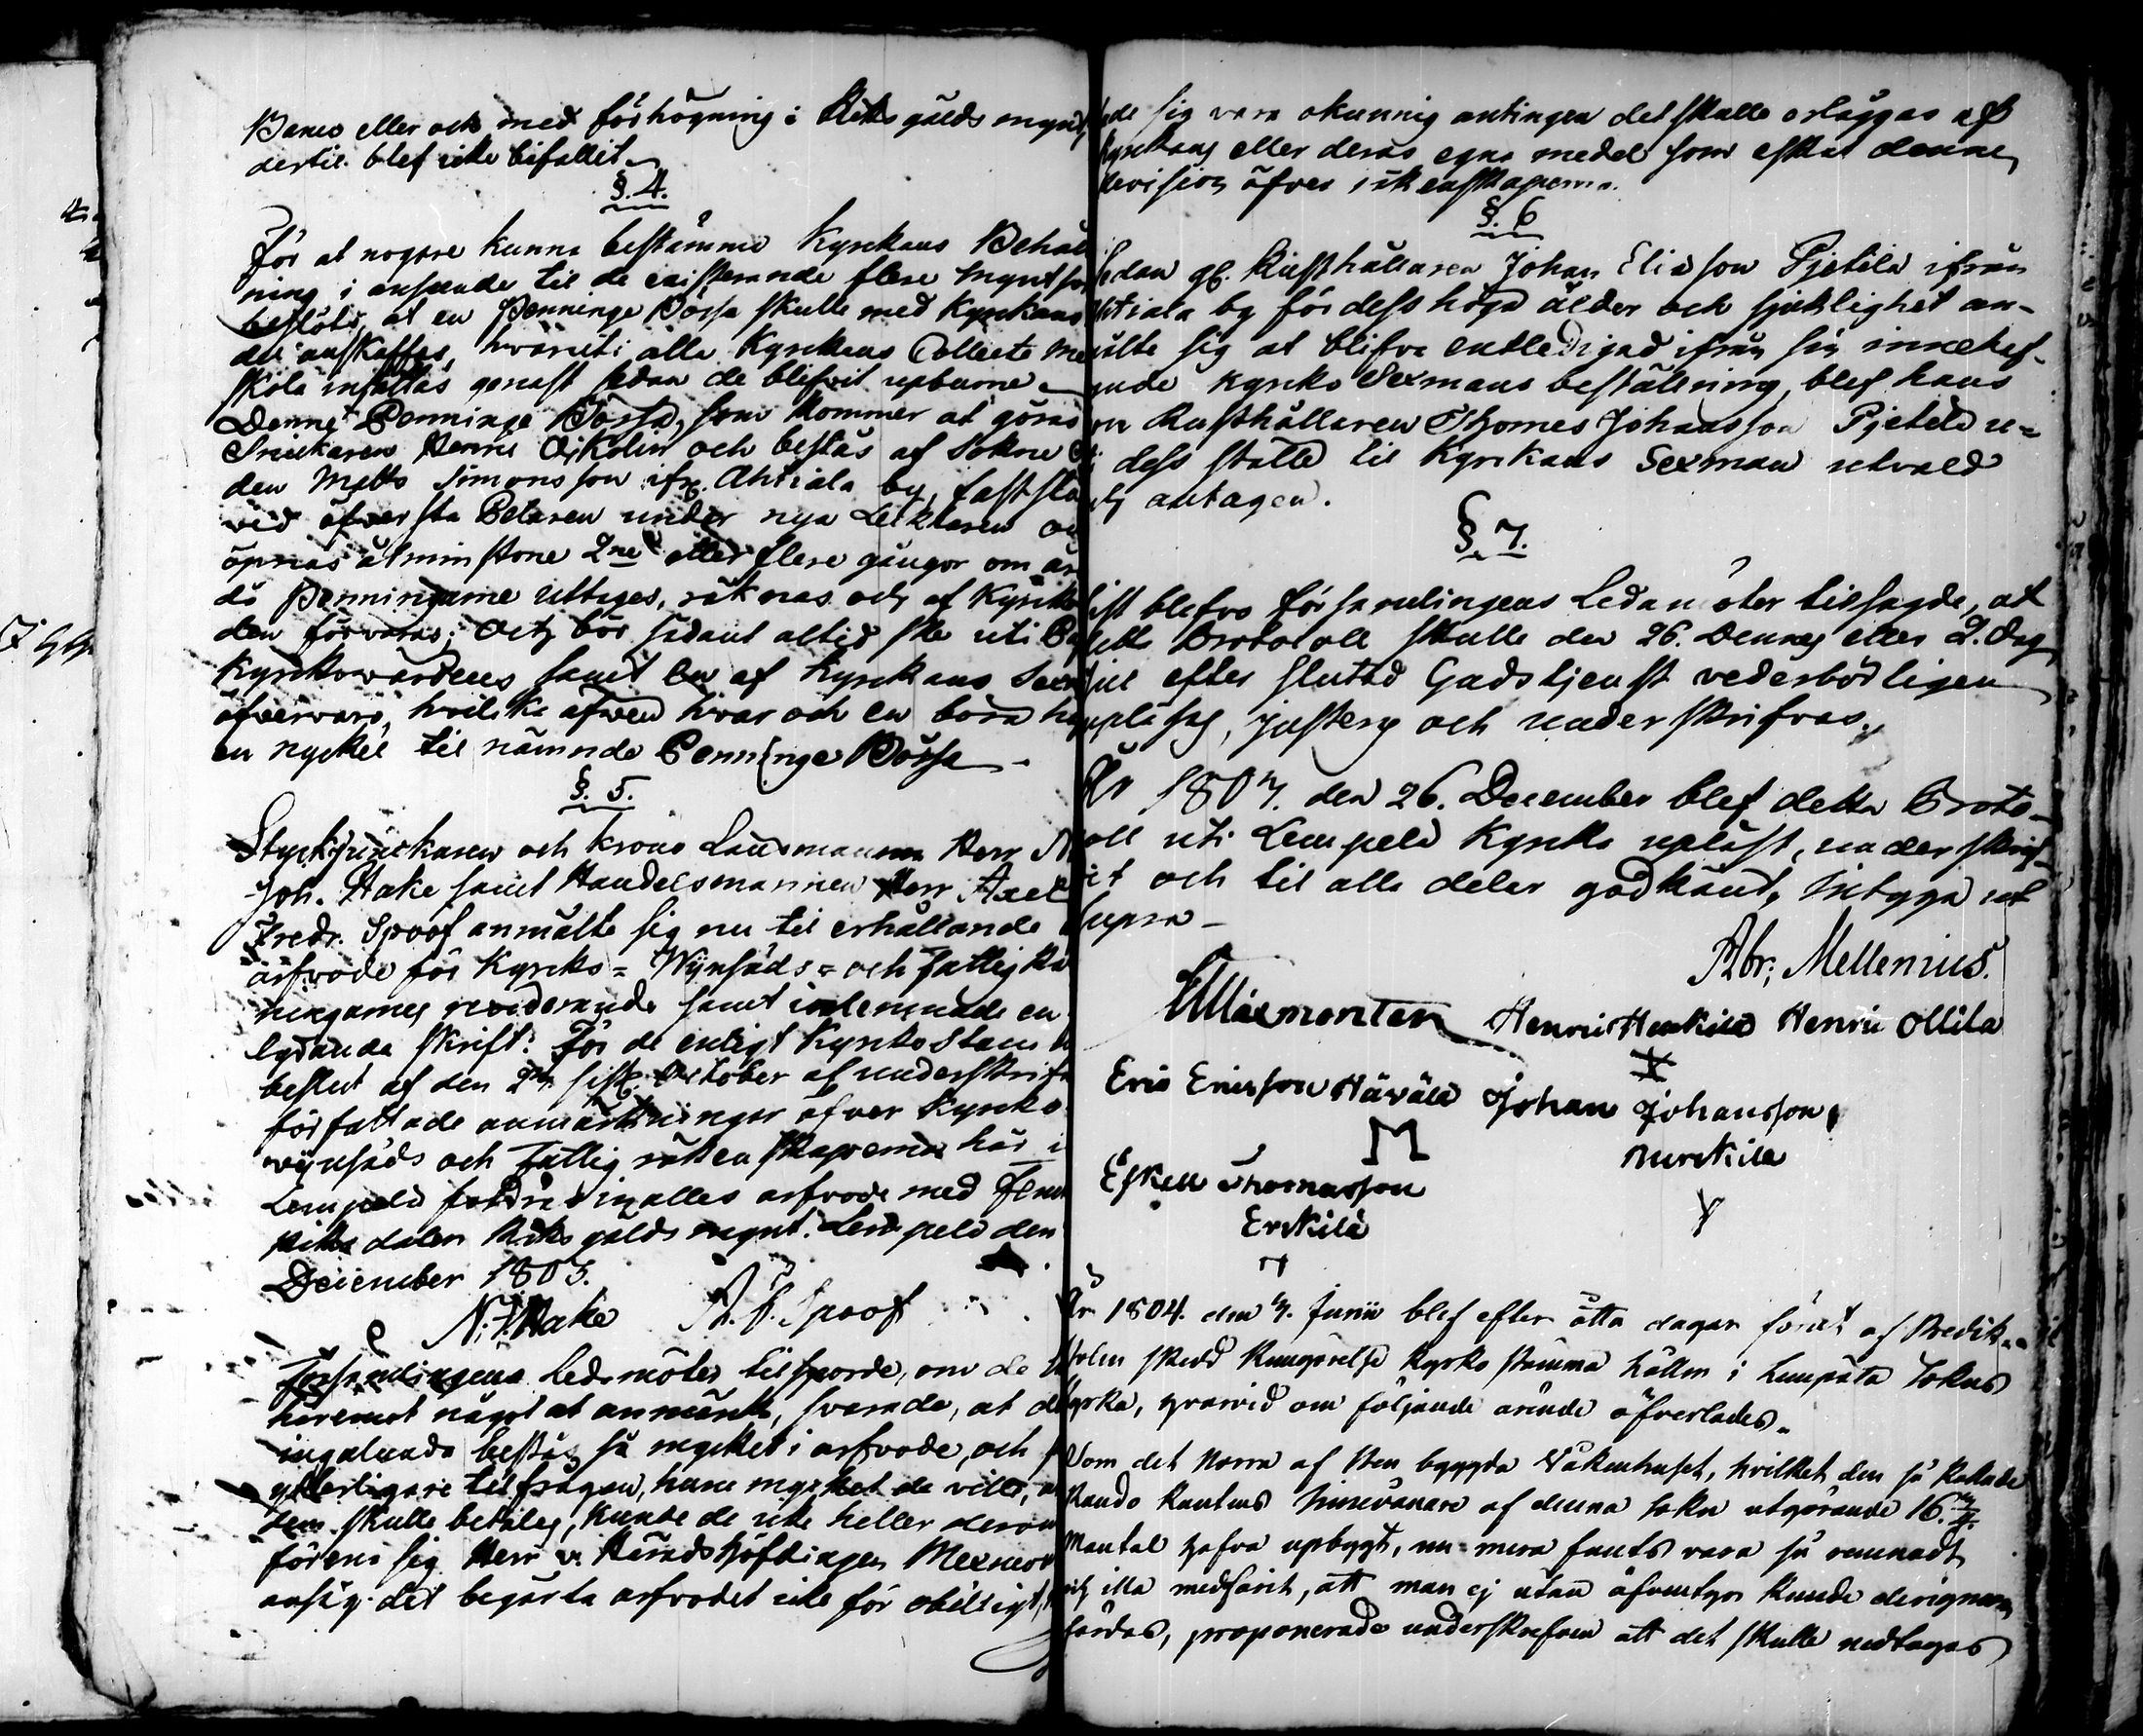 Banco eller ock med förhögning i Riks gälds mynt,
dertil blef icke bifallit.
§. 4.
För at nogare kunna bestämma Kyrkans Behåll
ning i anseende til de existerande flere myntsor
beslöts, at en Penninge Bössa skulle med Kyrkans
del anskaffas, hvaruti alla Kyrkans Collecte me
skola insättas genast sedan de blifvit upburne.
Denne Penninge Bössa, som kommer at göras
Snickaren Henric Ojkolin och bestås af Sokne
den Matts Simonsson ifr. Ahtiala by, fastslås
vid öfversta Pelaren under nya Lecktaren oc
öpnas åtminstone 2ne eller flere gångor om år
då Penningarne uttages, räknas och af Kyrko
den förvaras; Och bör sådant altid ske uti
Kyrkovärdens samt en af Kyrkans Sexm
öfvervaro, hvilka äfwen hvar och en böra ha
en nyckel til nämnde Penninge Bössa.
§. 5.
Styckjunckaren och Krono Länsmannen Herr N
Joh. Hake samt Handelsmannen Herr Axel
Fredr. Spoof anmälte sig nu til erhållande
arfvode för Kyrko= Wijnsäds= och fattig Rä
ningarnes reviderande samt inlemnade en
lydande skrift: För de enligt Kyrko Stam
beslut af den 2 sistl. October af underskrif
författade anmärkningar öfver Kyrko
wijnsäds och Fattig räkenskaperna här i
Lempelä fordras inalles arfvode med fem
Riks daler Riks gälds mynt. Lempelä den
December 1803.
N. J. Hake A. F. Spoof
Församlingens Ledamöter tilsporde, om de
häremot något at anmärka, svarade, at de
ingalunda bestås så mycket i arfvode, och
ytterligare tilfrågan, huru mycket de ville,
dem skulle betalas, kunde de icke heller derom
förena sig. Herr v. Häradshöfdingen Mexmont
ansåg det begärta arfvodet icke för obilligt,
de sig vara okunnig antingen det skulle erläggas af
Kyrkans eller deras egna medel som eskat denne
Revision öfver räkenskaperna.
§. 6
Sedan gl. Rusthållaren Johan Eliasson Pjetilä ifrån
Ahtiala by för dess höga ålder och sjuklighet an-
mälte sig at blifva entledigad ifrån sin innehaf-
vande Kyrko Sexmans beställning, blef hans
son Rusthållaren Thomas Johansson Pjetilä u=
ti dess ställe til Kyrkans Sexman utvald
och antagen.
§. 7.
Sist blefvo församlingens Ledamöter tilsagde, at
detta Protocoll skulle den 26. Dennes eller 2. Dag
Jul efter slutad Gudstjenst vederbörligen
upläsas, justeras och underskrifvas.
År 1803. den 26. December blef detta Proto-
coll uti Lempelä Kyrka upläst, underskrif-
vit och til alla delar godkänt, Intyga ut
supra-
Abr; Mellenius.
Mexmonten Henric Heikilä Henric Ollila
Eric Ericsson Häwälä Johan Johansson
Nurckila
Eskell Thomasson
Erckilä
År 1804. den 3. Junii blef efter åtta dagar förut af Predik-
stolen skedd Kungörelse Kyrko stämma hållen i Lempäla Sokns
kyrka, hvarvid om följande ärende öfverlades.
Som det norra af sten bygda Våkenhuset, hvilket den så kallade
Rando Kantens Innevånare af denna sokn utgörande 16.
Mantal hafva upbygt, nu mera funnits vara så remnadt
och illa medfarit, att man ej utan äfventyr kunde derigenom
färdas, proponerade underskrefven att det skulle nedtagas